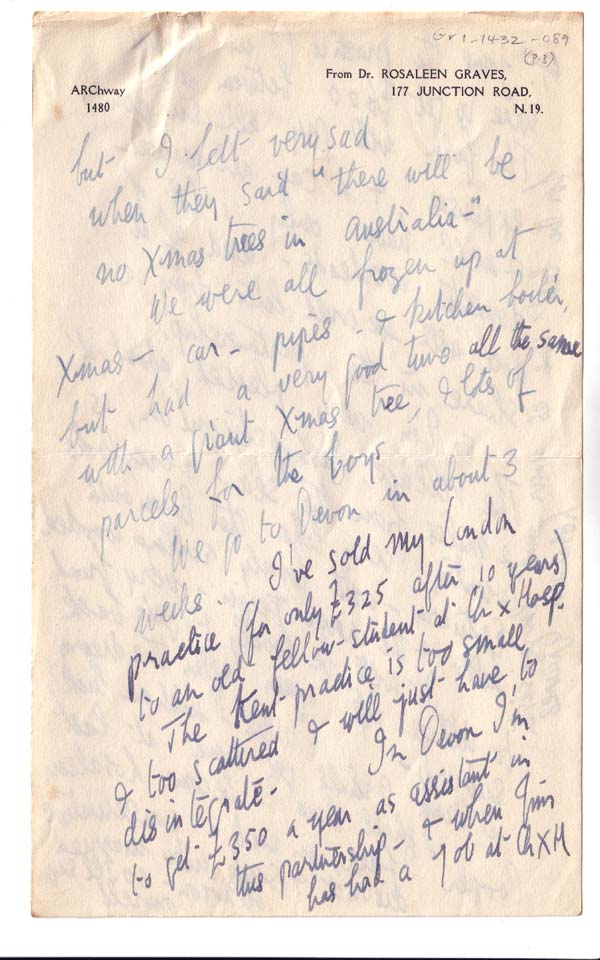 Gr1-1432-089
(p.3)
ARChway
1480
From Dr. ROSALEEN GRAVES,
177 JUNCTION ROAD,
N.19.
but I felt very sad
when they said "there will be
no Xmas trees in Australia-"
We were all frozen up at
Xmas- car- pipes- & kitchen boiler,
but had a very good time all the same
with a giant Xmas tree, & lots of
parcels for the boys
We go to Devon in about 3
weeks. I've sold my London
practice (for only £325 after 10 years)
to an old fellow-student at ChxHosp.
The Kent-practice is too small
& too scattered & will just have to
disintegrate. In Devon I'm
to get £350 a year as assistant in
this partnership- & when Jim
has had a job at ChXH